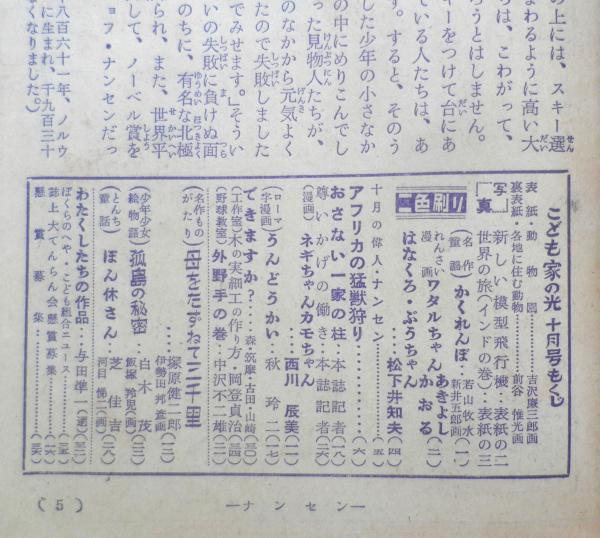 の上には、スキー選
まわるように高い大
ちは、こわがって、
ろうとはしません。
キーをつけて台にあ
ている人たちは、あ
す。すると、そのう
した少年の小さなか
の中にめりこんでし
った見物人たちが、
のなかから元気よく
たので失敗しました
でみせます。」そうい
いの失敗に負けぬ面
のちに、有名な北極
られ、また、世界平
して、ノーベル賞を
ョフ・ナンセンだっ
八百六十一年、ノルウ
に生まれ、千九百三十
くなりました。）
こども家の光 十月号もくじ
表紙・動物園・・・・・吉沢廉三郎画
裏表紙・各地に住む動物・・・・・前谷惟光画
写真
新しい模型飛行機・・表紙の二
世界の旅（インドの巻）・・表紙の三
二色刷り
（名作童謡）かくれんぼ・・若山牧水 新井五郎画（一）
れんさい漫画 ワタルちゃん・・あきよし かおる（二）
はなくろ・ぶうちゃん・・・・松下井知夫（四）
十月の偉人・ナンセン・・・・（五）
アフリカの猛獣狩り・・・・（六）
おさない一家の柱・・本誌記者（八）
尊いかげの働き・・本誌記者（二六）
（漫画）ネギちゃんカモちゃん・・・西川辰美（一一）
（ローマ字漫画）うんどうかい・・・秋玲二（一七）
できますか？・・森・筑摩・古田・山崎（三〇）
（工作室）木の実細工の作り方・岡登貞治（三四）
（野球教室）外野手の巻・中沢不二雄（三一）
（名作ものがたり）母をたずねて三千里
・・・・塚原健二郎 伊勢田邦彦画（一二）
（少年少女絵物語）孤島の秘密・・・白木茂 飯塚羚児画（三三）
（とんち童話）ぽん休さん・・・芝佳吉 河目悌二画（二八）
わたくしたちの作品・・・与田凖一（選）（三二）
ぼくらのへや・こども組合ニュース・・・・（三五）
誌上大てんらん会懸賞募集・・・・（二六）
懸賞募集・・・・（三六）
（5）
―ナンセン―